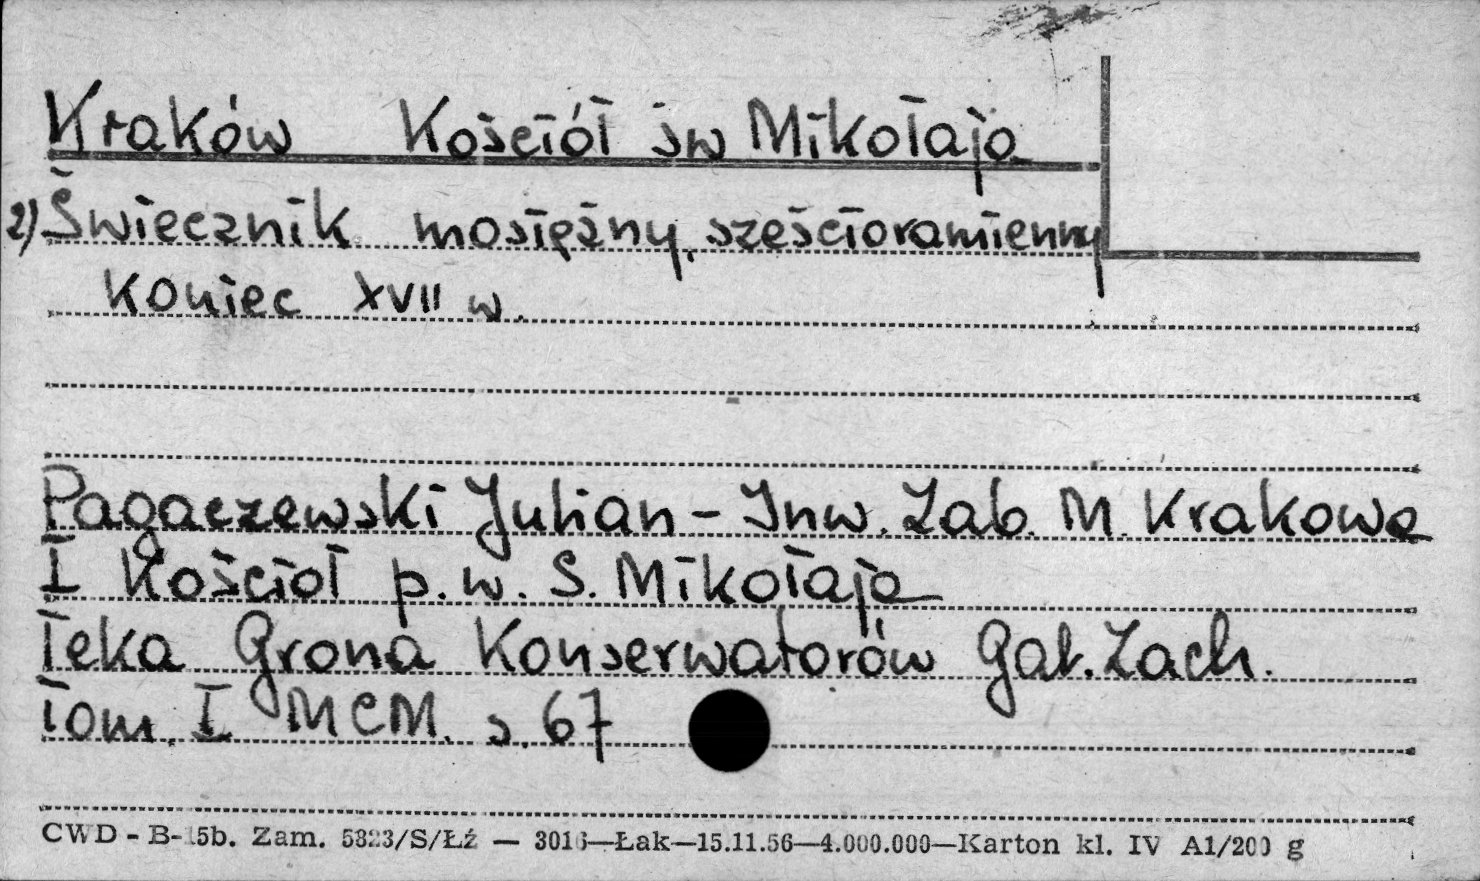 Kraków Kościół św Mikołaja
2) Świecznik mosiężny, sześcioramienny
koniec XVII w.
Pagaczewski Julian - Inw. Zab. M. Krakowa
I Kościoł p.w. S. Mikołaja
Teka Grona Konserwatorów Gal. Zach.
Tom. I MCM. s. 67
CWD - B-15b. Zam. 5823/S/Łź — 3016—Łak—15.11.56—4.000.000—Karton kl. IV A1/200 g